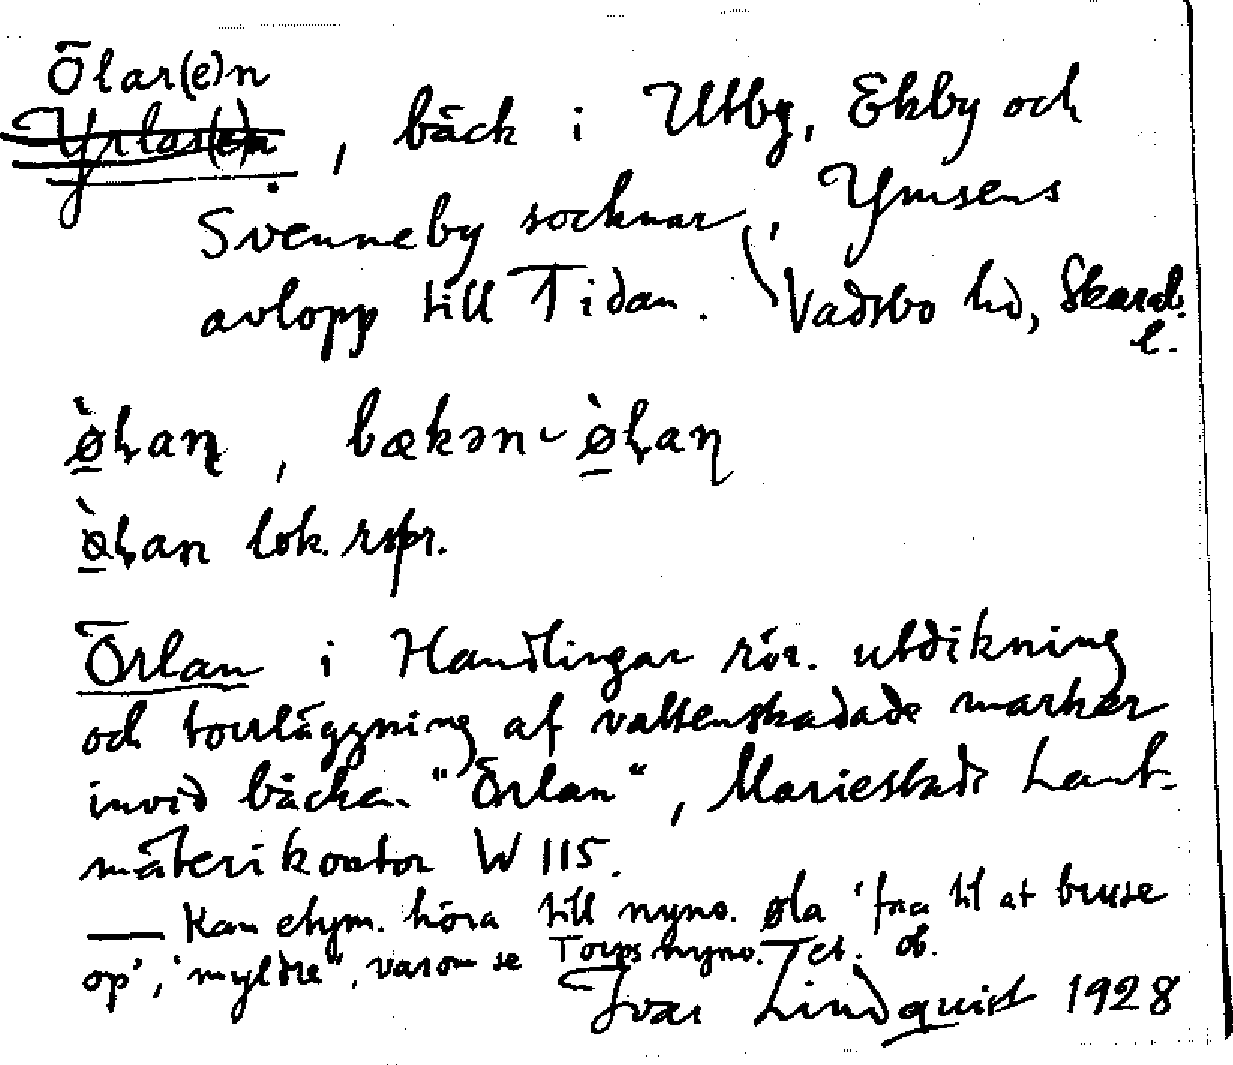 Ölar(e)n
Yrlar(e)n, bäck i Utby, Ekby och
Svenneby socknar, Ymsens
avlopp till Tidan. Vadsbo hd, Skarab.
l.
ø̀ḷaɳ, bækən-ø̀ḷaɳ
ø̀ḷan lok. rspr.
Örlan i Handlingar rör. utdikning
och torrläggning af vattenskadade marker
invid bäcken "Örlan", Mariestads Lant-
mäterikontor W 115.
— Kan etym. höra till nyno. øla 'faa til at bruse
op', 'myldre', varom se Torps nyno. Et. ob.
Ivar Lindquist 1928